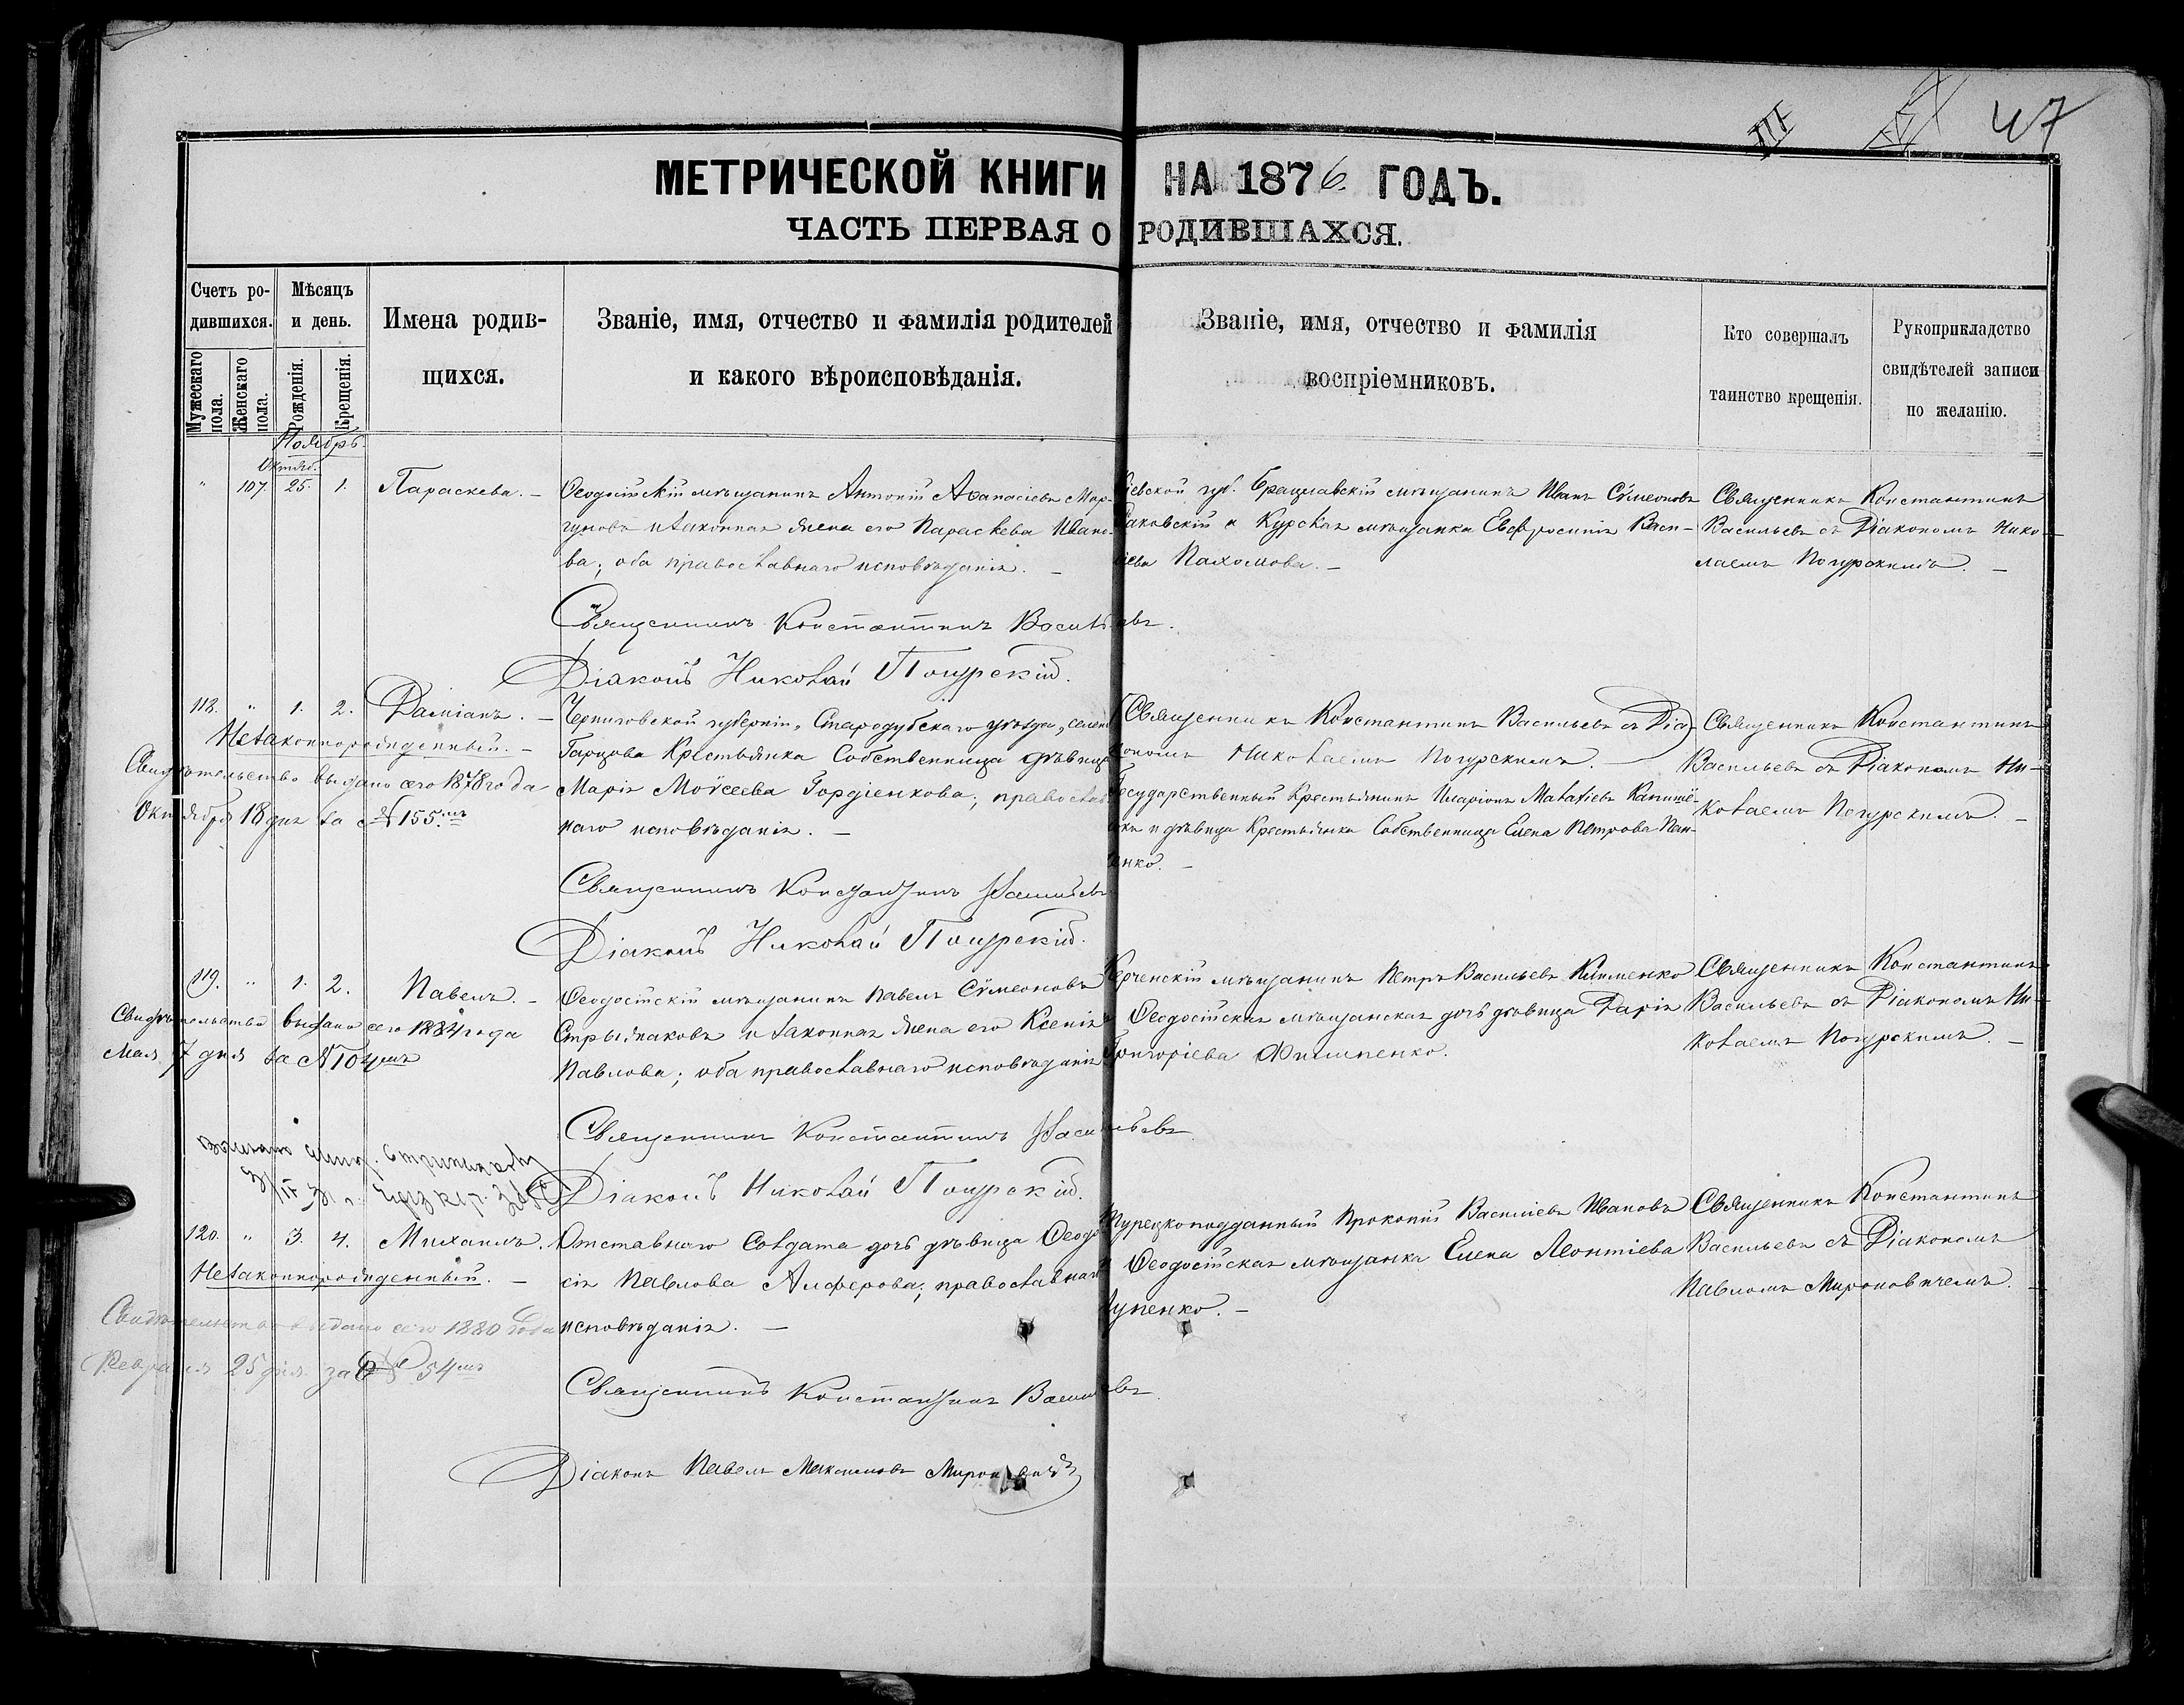 47
МЕТРИЧЕСКОЙ КНИГИ НА 1876. ГОДЪ.
ЧАСТЬ ПЕРВАЯ О РОДИВШАХСЯ.
Счетъ ро-
дившихся.
Мужескаго пола.
Женскаго пола.
Мѣсяцъ
и день.
Рожденія.
Крещенія.
Имена родив-
щихся.
Званіе, имя, отчество и фамилія родителей
и какого вѣроисповѣданія.
Званіе, имя, отчество и фамилія
воспріемниковъ.
Кто совершалъ
таинство крещенія.
Рукоприкладство
свидѣтелей записи
по желанію.
Ноябрь.
Октяб.
" 107. 25. 1. Параскева. –
Ѳеодосійскій мѣщанинъ Антоній Аѳанасіевъ Мар-
гуновъ и законная жена его Параскева Ивано-
ва; оба православнаго исповѣданія. –
Кіевской губ. Брацлавскій мѣщанинъ Иванъ Сѵмеоновъ
Раковскій и Курская мѣщанка Евфросинія Васи-
ліева Пахомова. –
Священникъ Константинъ
Васильевъ съ Діакономъ Нико-
лаемъ Погурскимъ. –
Священникъ Константинъ Васильевъ.
Діаконъ Николай Погурскій.
118. " 1. 2. Даміанъ. –
Незаконнорожденный. –
Свидѣтельство выдано сего 1878 года
Октября 18 дня за № 155.мъ
Черниговской губерніи, Стародубскаго уѣзда, селенія
Гарцова Крестьянка Собственница дѣвица
Марія Моѵсеева Гордіенкова; православ-
наго исповѣданія. –
Священникъ Константинъ Васильевъ съ Діа-
кономъ Николаемъ Погурскимъ. –
Государственный Крестьянинъ Иларіонъ
и дѣвица Крестьянка Собственница Елена Петрова Пан-
енко. –
Священникъ Константинъ
Васильевъ съ Діакономъ Ни-
колаемъ Погурскимъ. –
Священникъ Константинъ Васильевъ
Діаконъ Николай Погурскій.
119. " 1. 2. Павелъ. –
Свидѣтельство выдано сего 1884 года
Мая 7 дня за № 104мъ
Ѳеодосійскій мѣщанинъ Павелъ Сѵмеоновъ
Стрыжаковъ и законная жена его Ксенія
Павлова; оба православнаго исповѣданія
Керченскій мѣщанинъ Петръ Васильевъ Клименко
и Ѳеодосійская мѣщанская дочь дѣвица Дарія
Григоріева Филипенко.
Священникъ Константинъ
Васильевъ съ Діакономъ Ни-
колаемъ Погурскимъ. –
Священникъ Константинъ Васильевъ
Діаконъ Николай Погурскій.
120. " 3. 4. Михаилъ.
Незаконнорожденный. –
Свидѣтельство выдано сего 1880 года
Февраля 25 дня за № 54мъ
Отставнаго Солдата дочь дѣвица Ѳеодо-
сія Павлова Алферова; православнаго
исповѣданія. –
Турецкоподданный Прокопій Василіевъ Ивановъ
и Ѳеодосійская мѣщанка Елена Леонтіева
Священникъ Константинъ
Васильевъ съ Діакономъ
Павломъ Мироновичемъ. –
Священникъ Константинъ Васильевъ.
Діаконъ Павелъ Максимовъ Мироновичъ